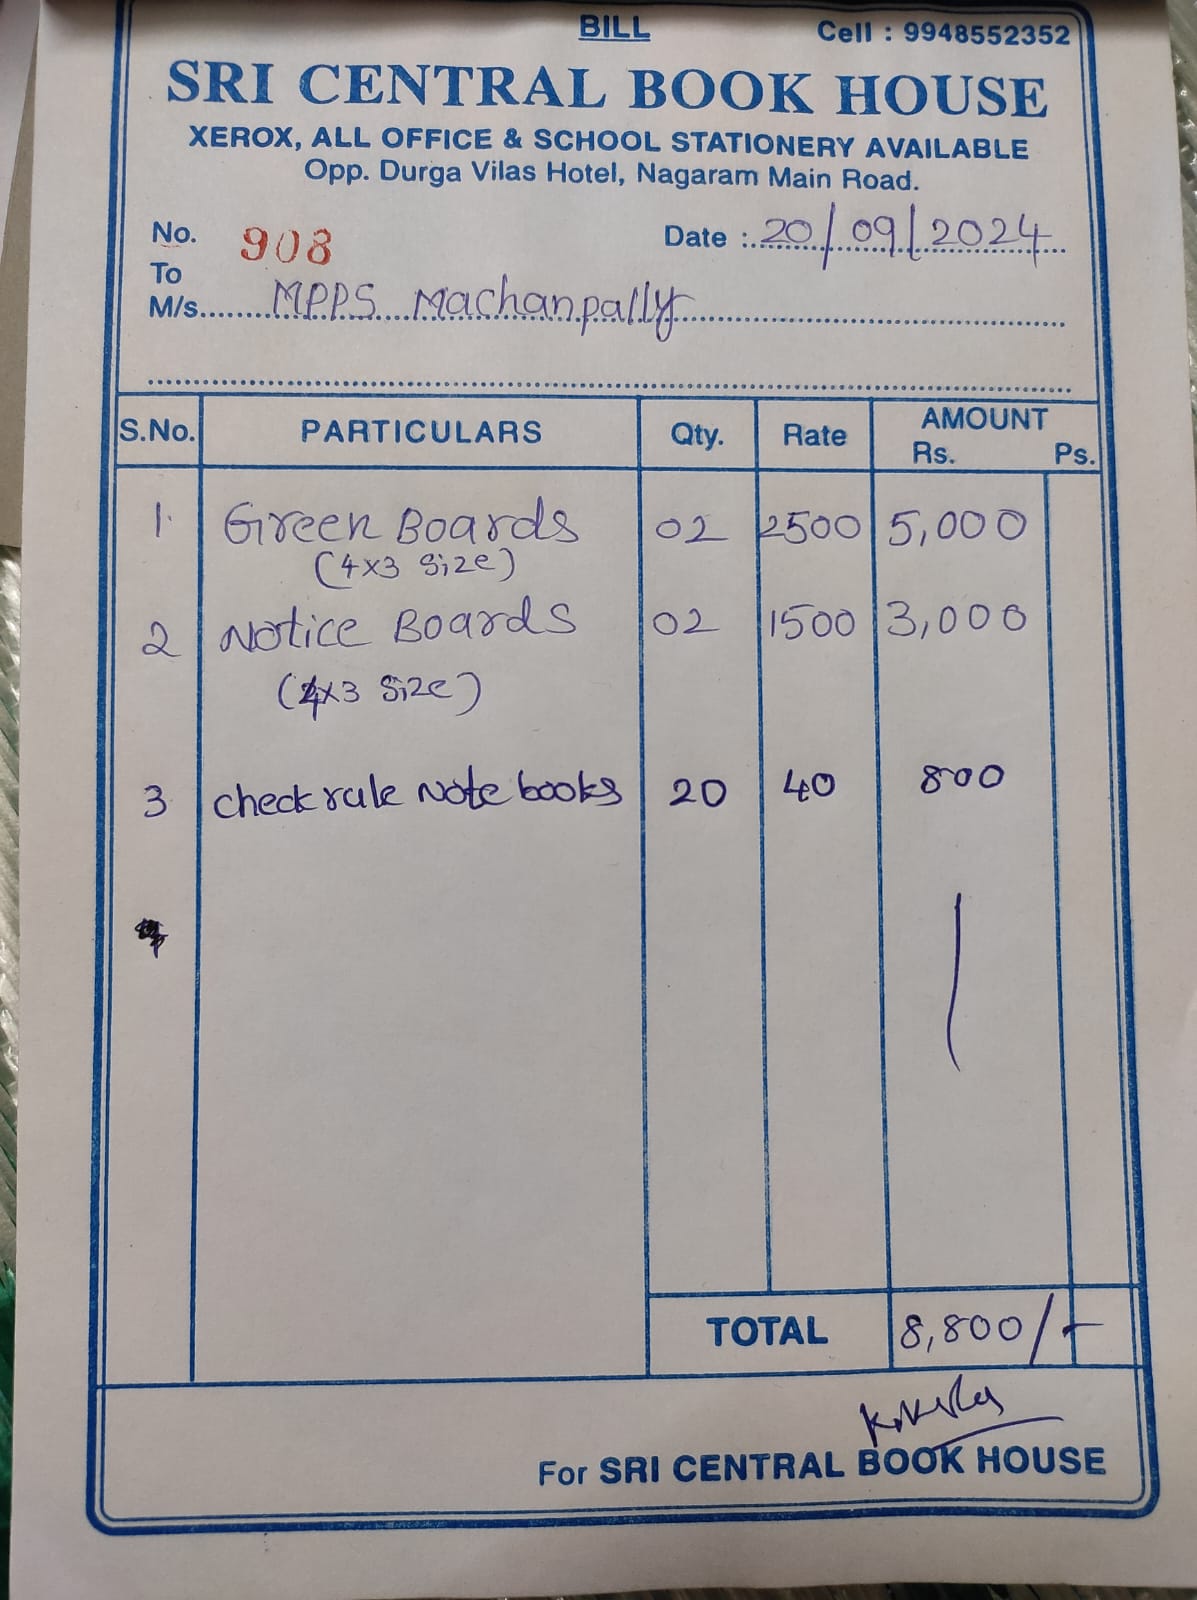 BILL
Cell : 9948552352
SRI CENTRAL BOOK HOUSE
XEROX, ALL OFFICE & SCHOOL STATIONERY AVAILABLE
Opp. Durga Vilas Hotel, Nagaram Main Road.
No. 908 Date : 20/09/2024
To
M/s. MPPS Machanpally
S.No. PARTICULARS Qty. Rate AMOUNT Rs. Ps.
1. Green Boards 02 2500 5,000
(4x3 Size)
2 Notice Boards 02 1500 3,000
(4x3 Size)
3 check rule Note books 20 40 800
TOTAL 8,800/-
For SRI CENTRAL BOOK HOUSE